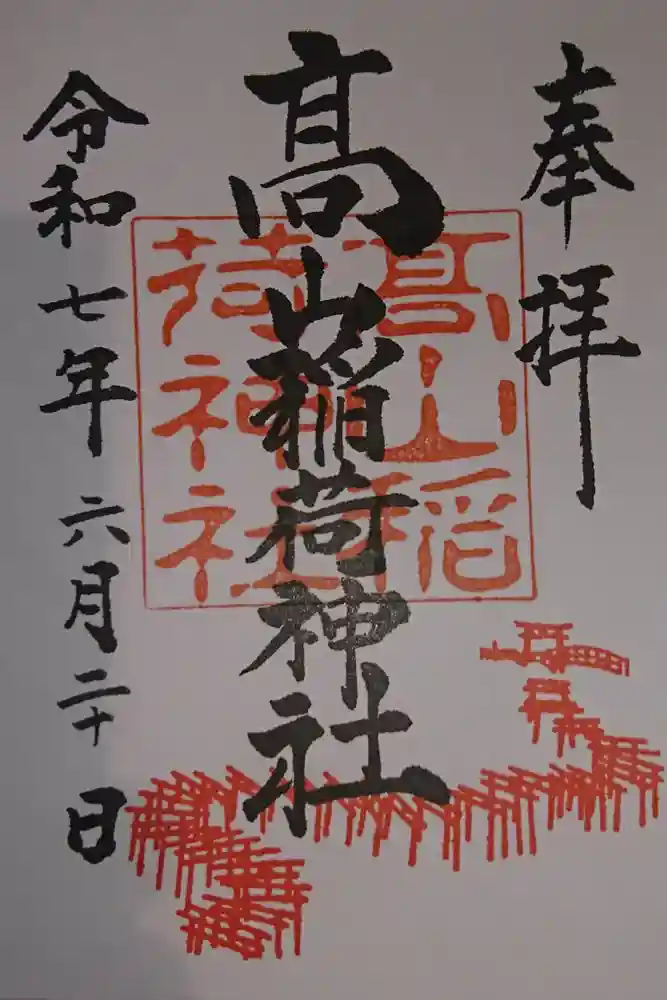 奉拝
髙山稲荷神社
髙山稲
荷神社
令和七年六月二十日